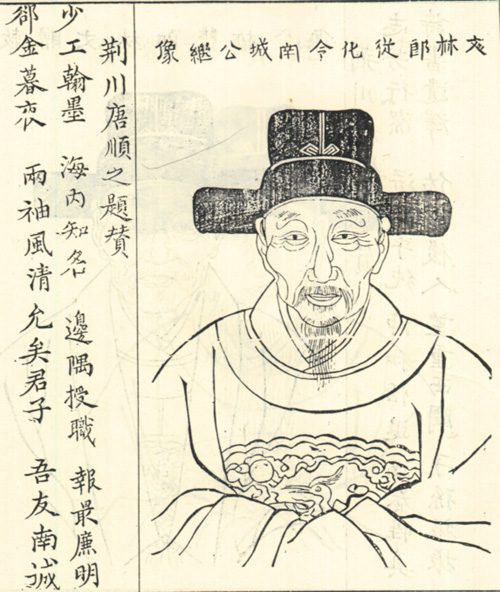 文林郎從化令南城公繼像
荊川唐順之題贊
少工翰墨 海內知名 邊隅授職 報最廉明
郤金暮夜 兩袖風清 允矣君子 吾友南誠